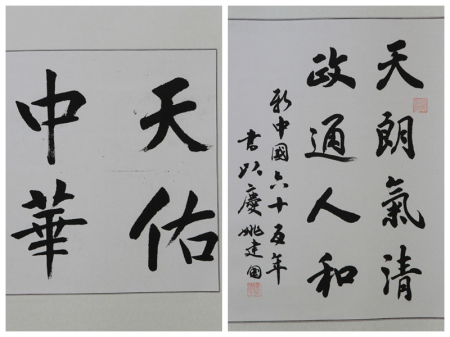 天佑
中華
天朗氣清
政通人和
新中國六十五年
書以慶姚建國